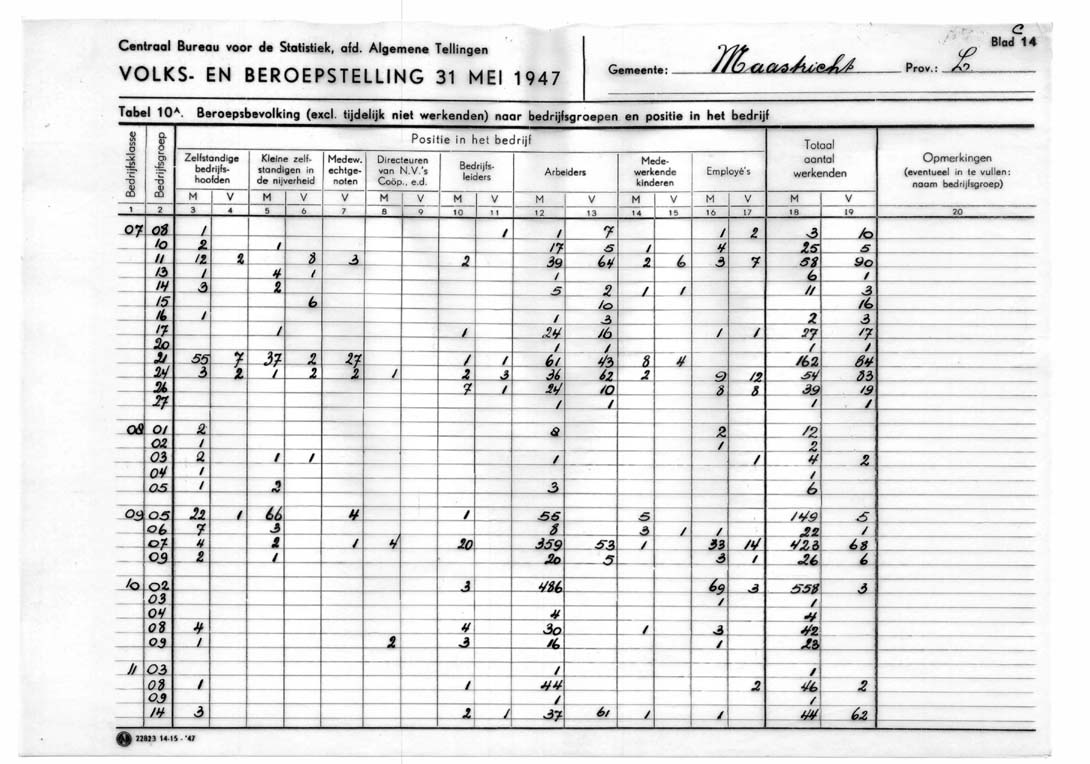 C
Blad 14
Centraal Bureau voor de Statistiek, afd. Algemene Tellingen
VOLKS- EN BEROEPSTELLING 31 MEI 1947
Gemeente: Maastricht Prov.: L.
Tabel 10A. Beroepsbevolking (excl. tijdelijk niet werkenden) naar bedrijfsgroepen en positie in het bedrijf
Bedrijfsklasse
Bedrijfsgroep
Positie in het bedrijf
Zelfstandige bedrijfs-hoofden
Kleine zelf-standigen in de nijverheid
Medew. echtge-noten
Directeuren van N.V.'s Coöp., e.d.
Bedrijfs-leiders
Arbeiders
Mede-werkende kinderen
Employé's
Totaal aantal werkenden
Opmerkingen (eventueel in te vullen: naam bedrijfsgroep)
M V M V V M V M V M V M V M V M V
1 2 3 4 5 6 7 8 9 10 11 12 13 14 15 16 17 18 19 20
07 08 1 1 1 7 1 2 3 10
10 2 1 17 5 1 4 25 5
11 12 2 8 3 2 39 64 2 6 3 7 58 90
13 1 4 1 1 6 1
14 3 2 5 2 1 1 11 3
15 6 10 16
16 1 1 3 2 3
17 1 1 24 16 1 1 27 17
20 1 1 1 1
21 55 7 37 2 27 1 1 61 43 8 4 162 84
24 3 2 1 2 2 1 2 3 36 62 2 9 12 54 83
26 7 1 24 10 8 8 39 19
27 1 1 1 1
08 01 2 8 2 12
02 1 1 2
03 2 1 1 1 1 4 2
04 1 1
05 1 2 3 6
09 05 22 1 66 4 1 55 5 149 5
06 7 3 8 3 1 1 22 1
07 4 2 1 4 20 359 53 1 33 14 423 68
09 2 1 20 5 3 1 26 6
10 02 3 486 69 3 558 3
03 1 1
04 4 4
08 4 4 30 1 3 42
09 1 2 3 16 1 23
11 03 1 1
08 1 1 44 2 46 2
09 1 1
14 3 2 1 37 61 1 1 44 62
22823 14-15 - '47